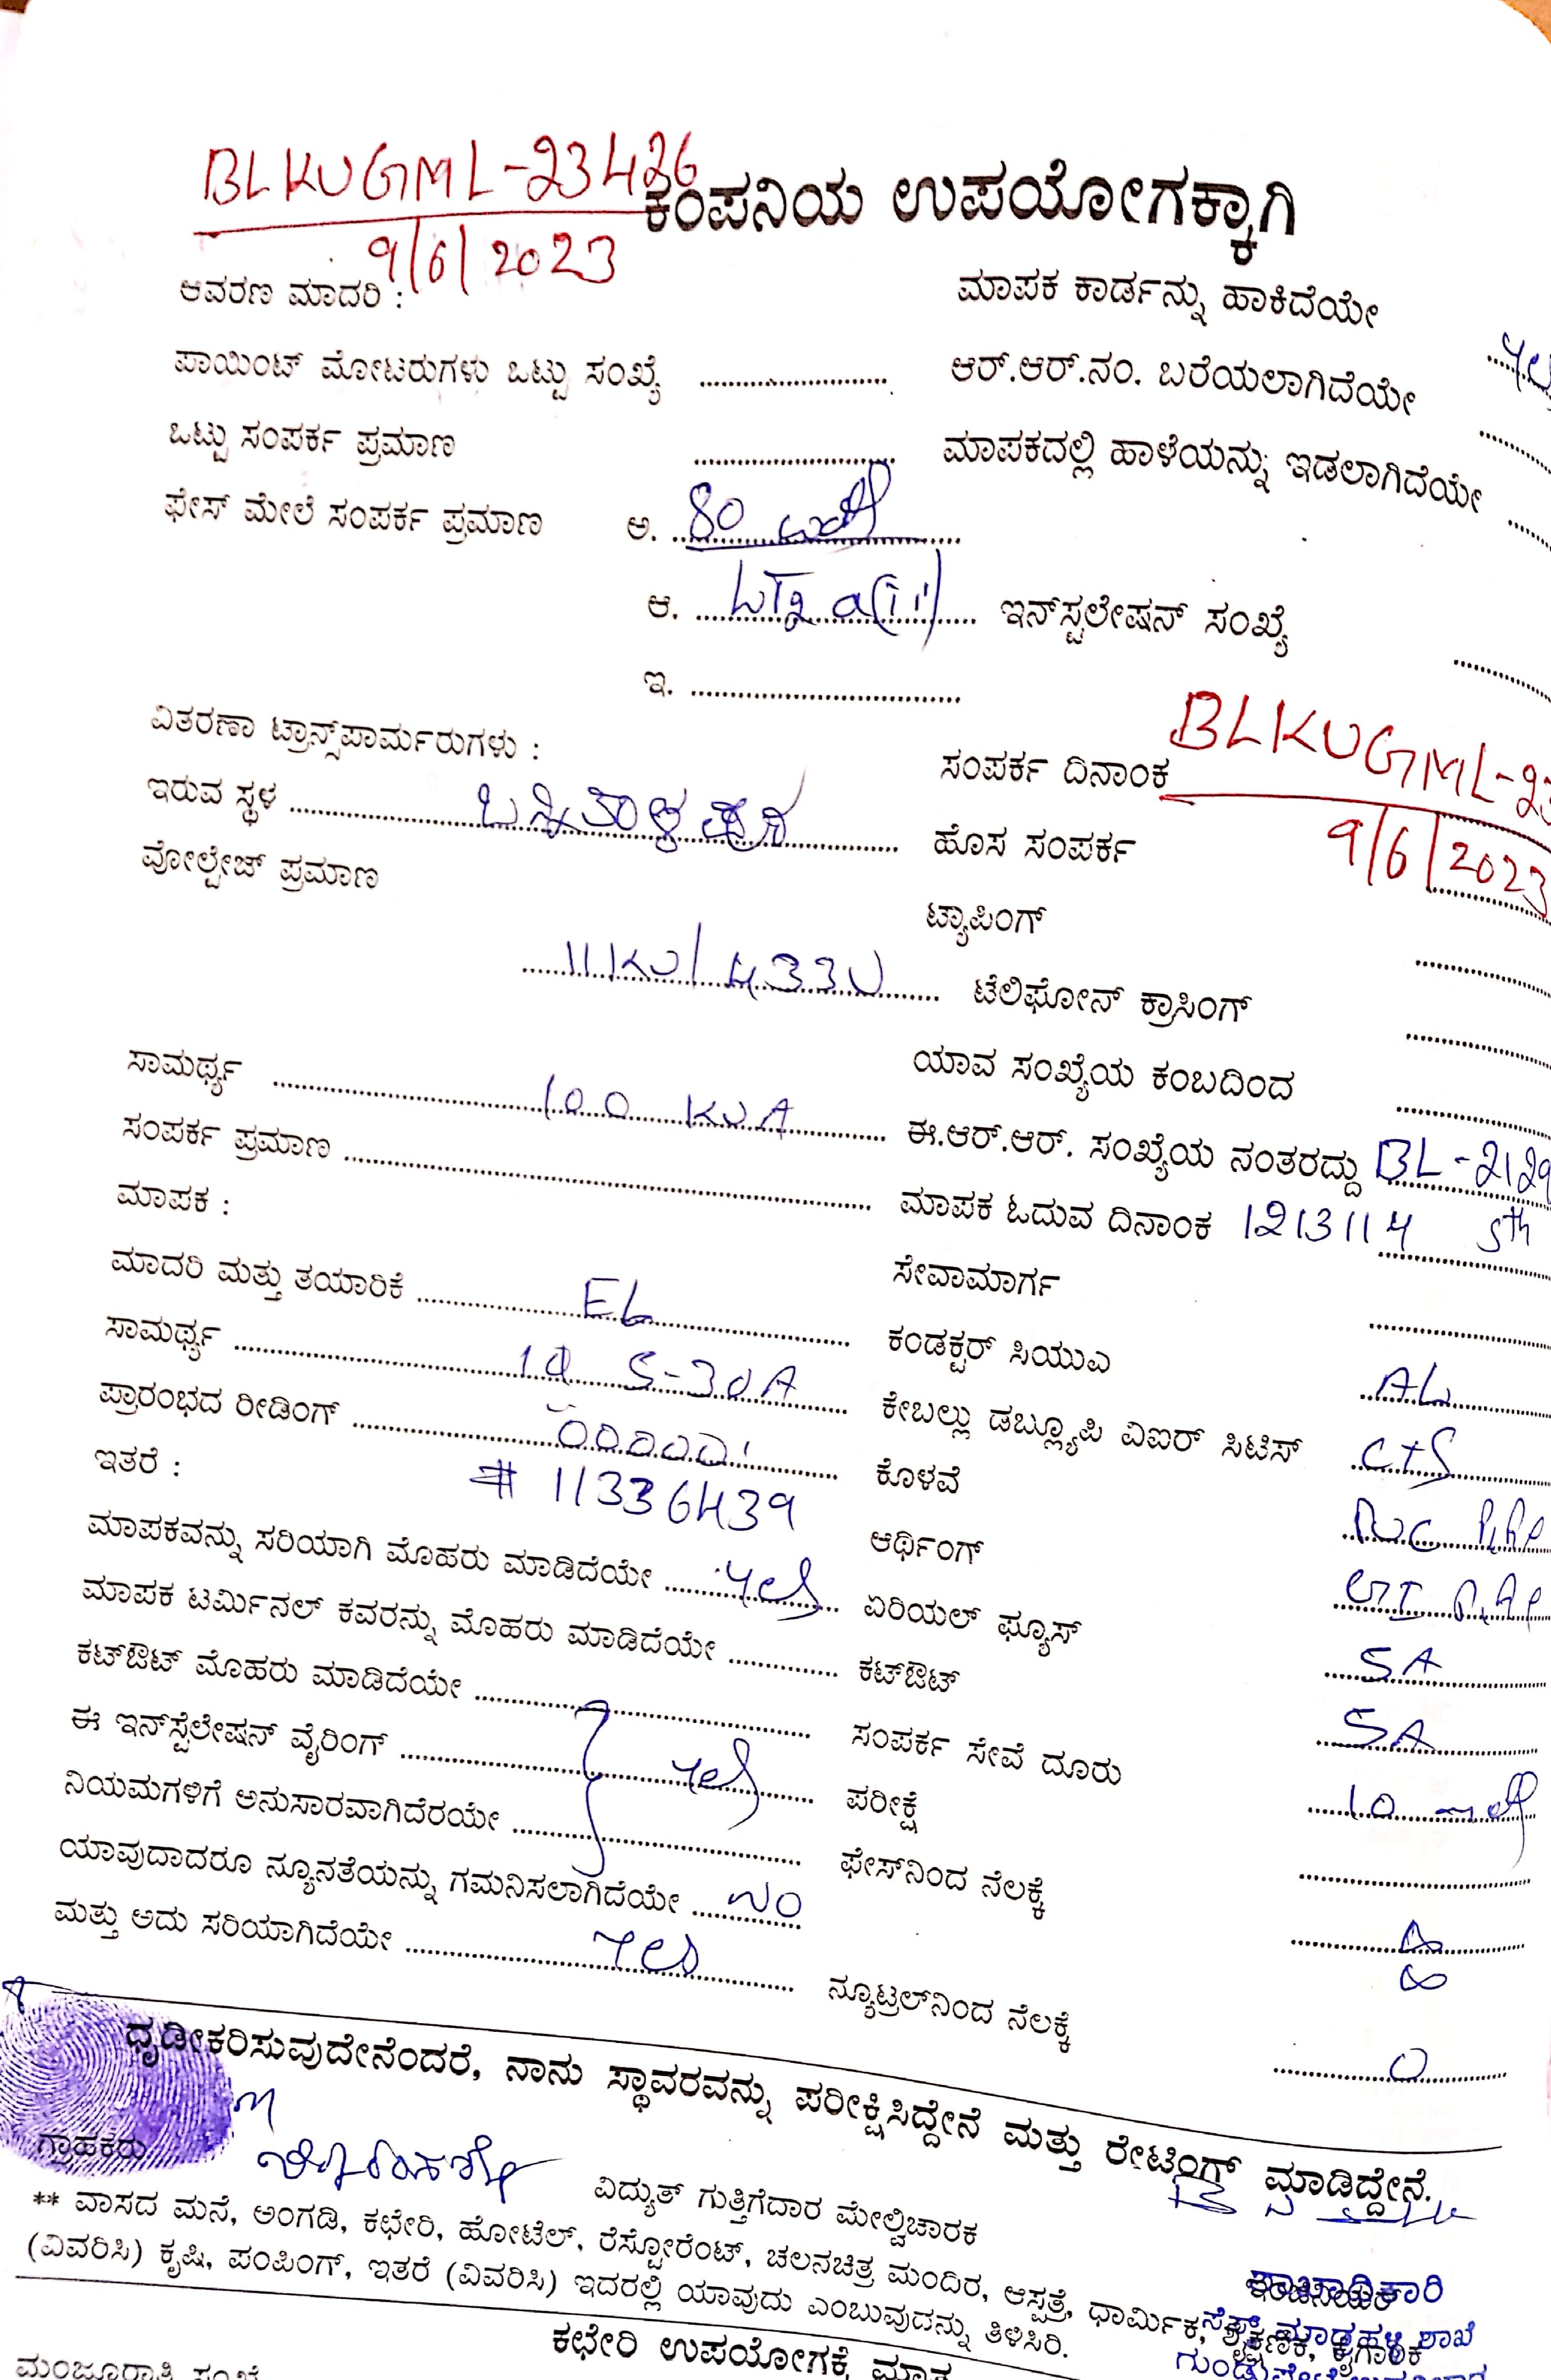 BLKUGML-23426
ಕಂಪನಿಯ ಉಪಯೋಗಕ್ಕಾಗಿ
9/6/2023
ಆವರಣ ಮಾದರಿ :
ಮಾಪಕ ಕಾರ್ಡನ್ನು ಹಾಕಿದೆಯೇ
ಪಾಯಿಂಟ್ ಮೋಟರುಗಳು ಒಟ್ಟು ಸಂಖ್ಯೆ
ಆರ್.ಆರ್.ನಂ. ಬರೆಯಲಾಗಿದೆಯೇ
ಒಟ್ಟು ಸಂಪರ್ಕ ಪ್ರಮಾಣ
ಮಾಪಕದಲ್ಲಿ ಹಾಳೆಯನ್ನು ಇಡಲಾಗಿದೆಯೇ
ಫೇಸ್ ಮೇಲೆ ಸಂಪರ್ಕ ಪ್ರಮಾಣ ಅ. 80
ಆ. LT2 a(ii) ಇನ್‌ಸ್ಟಲೇಷನ್ ಸಂಖ್ಯೆ
ಇ.
ವಿತರಣಾ ಟ್ರಾನ್ಸ್‌ಪಾರ್ಮರುಗಳು :
ಸಂಪರ್ಕ ದಿನಾಂಕ BLKUGML-23
ಇರುವ ಸ್ಥಳ
ಹೊಸ ಸಂಪರ್ಕ 9/6/2023
ವೋಲ್ಟೇಜ್ ಪ್ರಮಾಣ
ಟ್ಯಾಪಿಂಗ್
11KV/433V ಟೆಲಿಫೋನ್ ಕ್ರಾಸಿಂಗ್
ಯಾವ ಸಂಖ್ಯೆಯ ಕಂಬದಿಂದ
ಸಾಮರ್ಥ್ಯ 100 KVA
ಈ.ಆರ್.ಆರ್. ಸಂಖ್ಯೆಯ ನಂತರದ್ದು BL-2129
ಸಂಪರ್ಕ ಪ್ರಮಾಣ
ಮಾಪಕ ಓದುವ ದಿನಾಂಕ 1213114 5th
ಮಾಪಕ :
ಸೇವಾಮಾರ್ಗ
ಮಾದರಿ ಮತ್ತು ತಯಾರಿಕೆ EL
ಕಂಡಕ್ಟರ್ ಸಿಯುಎ AL
ಸಾಮರ್ಥ್ಯ 1Φ 5-30A
ಕೇಬಲ್ಲು ಡಬ್ಲ್ಯೂಪಿ ವಿಐಆರ್ ಸಿಟಿಸ್ CTS
ಪ್ರಾರಂಭದ ರೀಡಿಂಗ್
ಕೊಳವೆ PVC Pipe
ಇತರೆ : # 11336439
ಆರ್ಥಿಂಗ್ GI Pipe
ಮಾಪಕವನ್ನು ಸರಿಯಾಗಿ ಮೊಹರು ಮಾಡಿದೆಯೇ yes
ಏರಿಯಲ್ ಫ್ಯೂಸ್ 5A
ಮಾಪಕ ಟರ್ಮಿನಲ್ ಕವರನ್ನು ಮೊಹರು ಮಾಡಿದೆಯೇ
ಕಟ್‌ಔಟ್ 5A
ಕಟ್‌ಔಟ್ ಮೊಹರು ಮಾಡಿದೆಯೇ
ಸಂಪರ್ಕ ಸೇವೆ ದೂರು 10
ಈ ಇನ್‌ಸ್ಟೆಲೇಷನ್ ವೈರಿಂಗ್ yes
ಪರೀಕ್ಷೆ
ನಿಯಮಗಳಿಗೆ ಅನುಸಾರವಾಗಿದೆರಯೇ
ಫೇಸ್‌ನಿಂದ ನೆಲಕ್ಕೆ
ಯಾವುದಾದರೂ ನ್ಯೂನತೆಯನ್ನು ಗಮನಿಸಲಾಗಿದೆಯೇ No
ಮತ್ತು ಅದು ಸರಿಯಾಗಿದೆಯೇ yes
ನ್ಯೂಟ್ರಲ್‌ನಿಂದ ನೆಲಕ್ಕೆ 0
ಧೃಡೀಕರಿಸುವುದೇನೆಂದರೆ, ನಾನು ಸ್ಥಾವರವನ್ನು ಪರೀಕ್ಷಿಸಿದ್ದೇನೆ ಮತ್ತು ರೇಟಿಂಗ್ ಮಾಡಿದ್ದೇನೆ.
ಗ್ರಾಹಕರು
ವಿದ್ಯುತ್ ಗುತ್ತಿಗೆದಾರ ಮೇಲ್ವಿಚಾರಕ
ಶಾಖಾಧಿಕಾರಿ
** ವಾಸದ ಮನೆ, ಅಂಗಡಿ, ಕಛೇರಿ, ಹೋಟೆಲ್, ರೆಸ್ಟೋರೆಂಟ್, ಚಲನಚಿತ್ರ ಮಂದಿರ, ಆಸ್ಪತ್ರೆ, ಧಾರ್ಮಿಕ, ಶೈಕ್ಷಣಿಕ, ಕೈಗಾರಿಕೆ
(ವಿವರಿಸಿ) ಕೃಷಿ, ಪಂಪಿಂಗ್, ಇತರೆ (ವಿವರಿಸಿ) ಇದರಲ್ಲಿ ಯಾವುದು ಎಂಬುವುದನ್ನು ತಿಳಿಸಿರಿ.
ಕಛೇರಿ ಉಪಯೋಗಕ್ಕೆ ಮಾತ್ರ